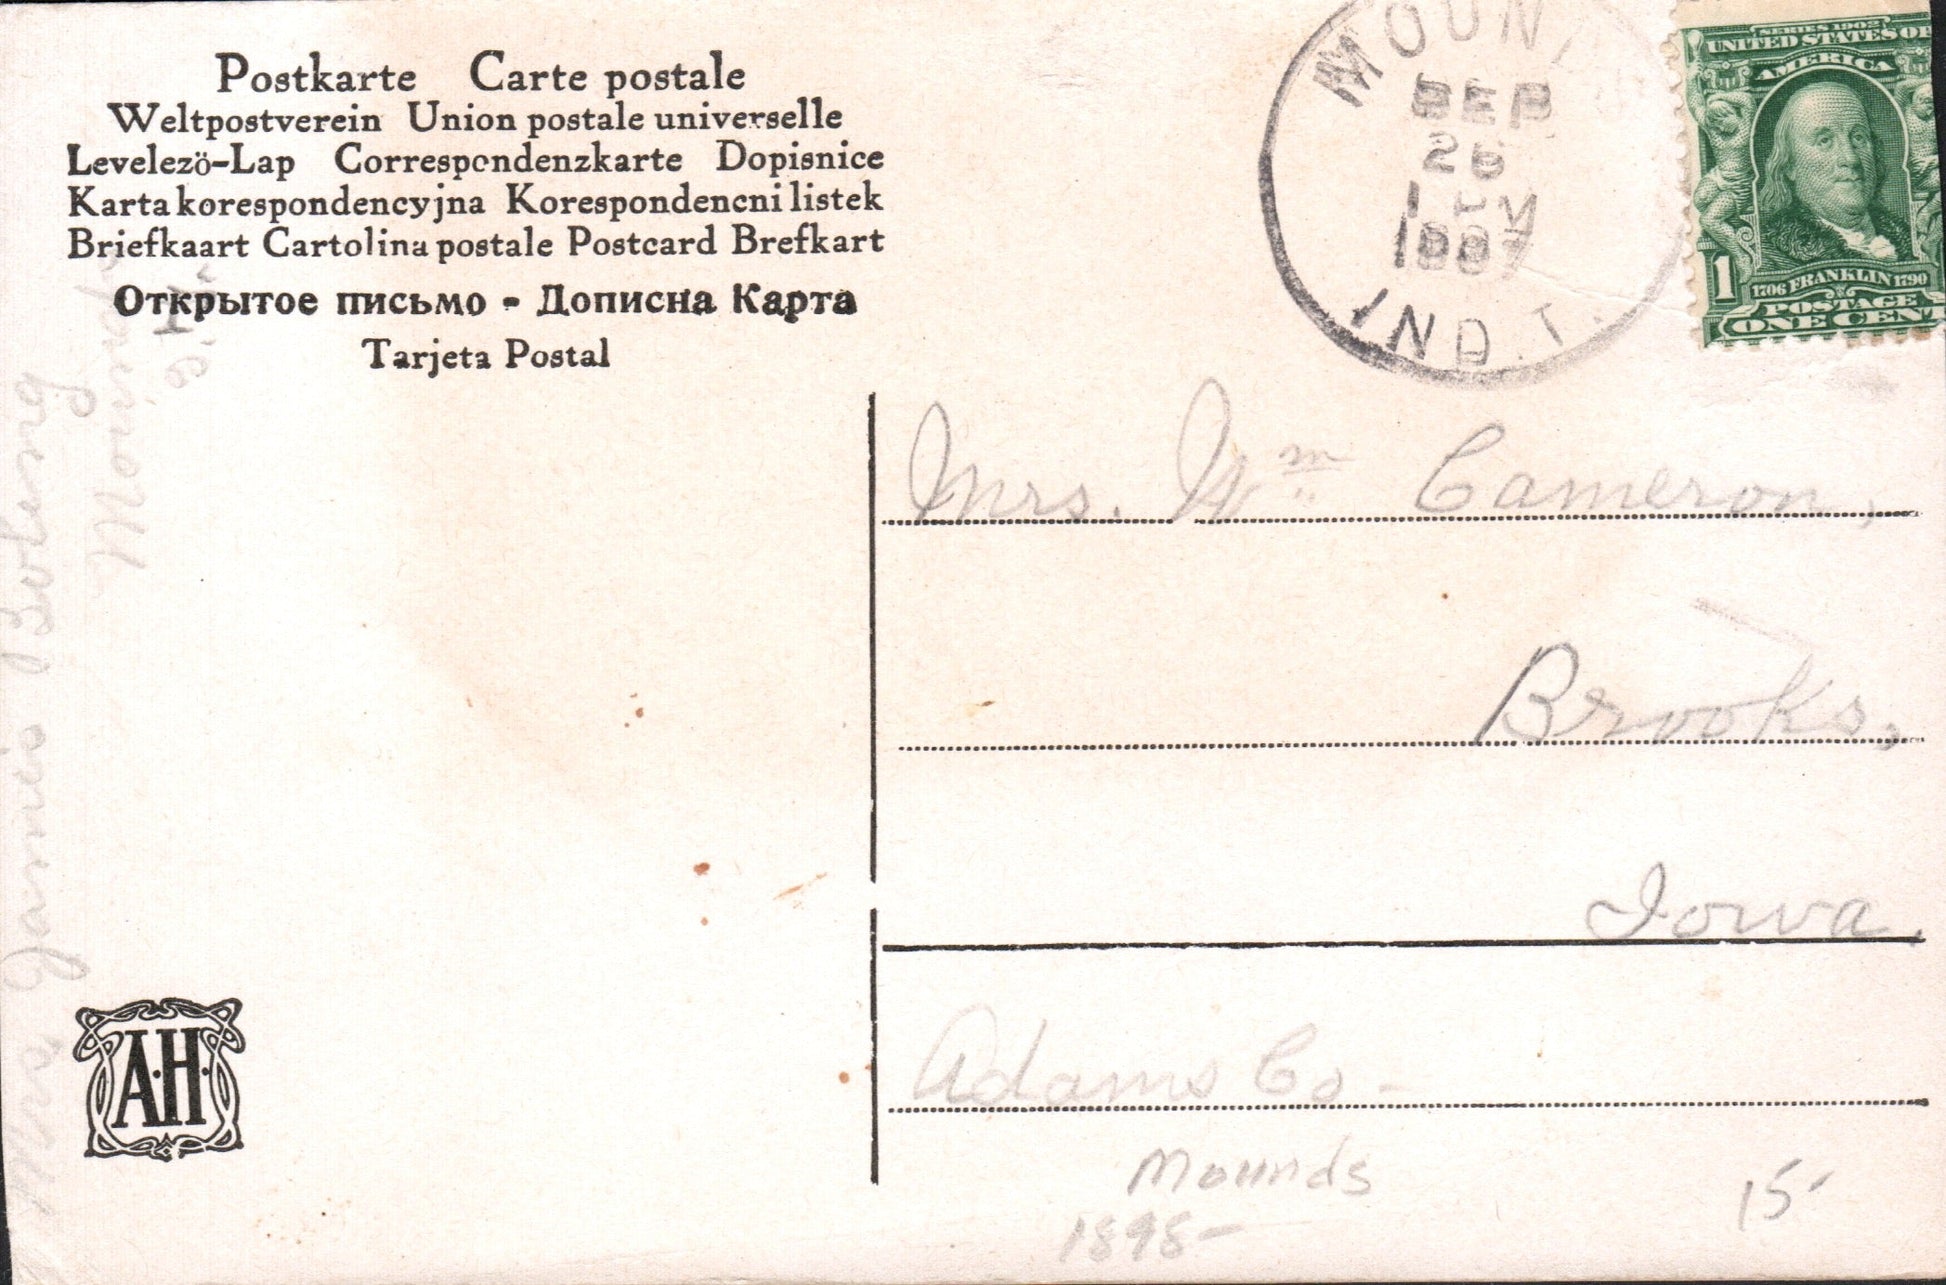 Postkarte Carte postale
Weltpostverein Union postale universelle
Levelezö-Lap Correspondenzkarte Dopisnice
Karta korespondencyjna Korespondencni listek
Briefkaart Cartolina postale Postcard Brefkart
Открытое письмо - Дописна Карта
Tarjeta Postal
MOUN
SEP
26
1907
IND. T.
SERIES 1902
UNITED STATES OF
AMERICA
1706 FRANKLIN 1790
POSTAGE
1
ONE CEN
Mrs. Wm Cameron,
Brooks,
Iowa.
Adams Co-
Mounds
1898-
15-
A.H.
Mrs